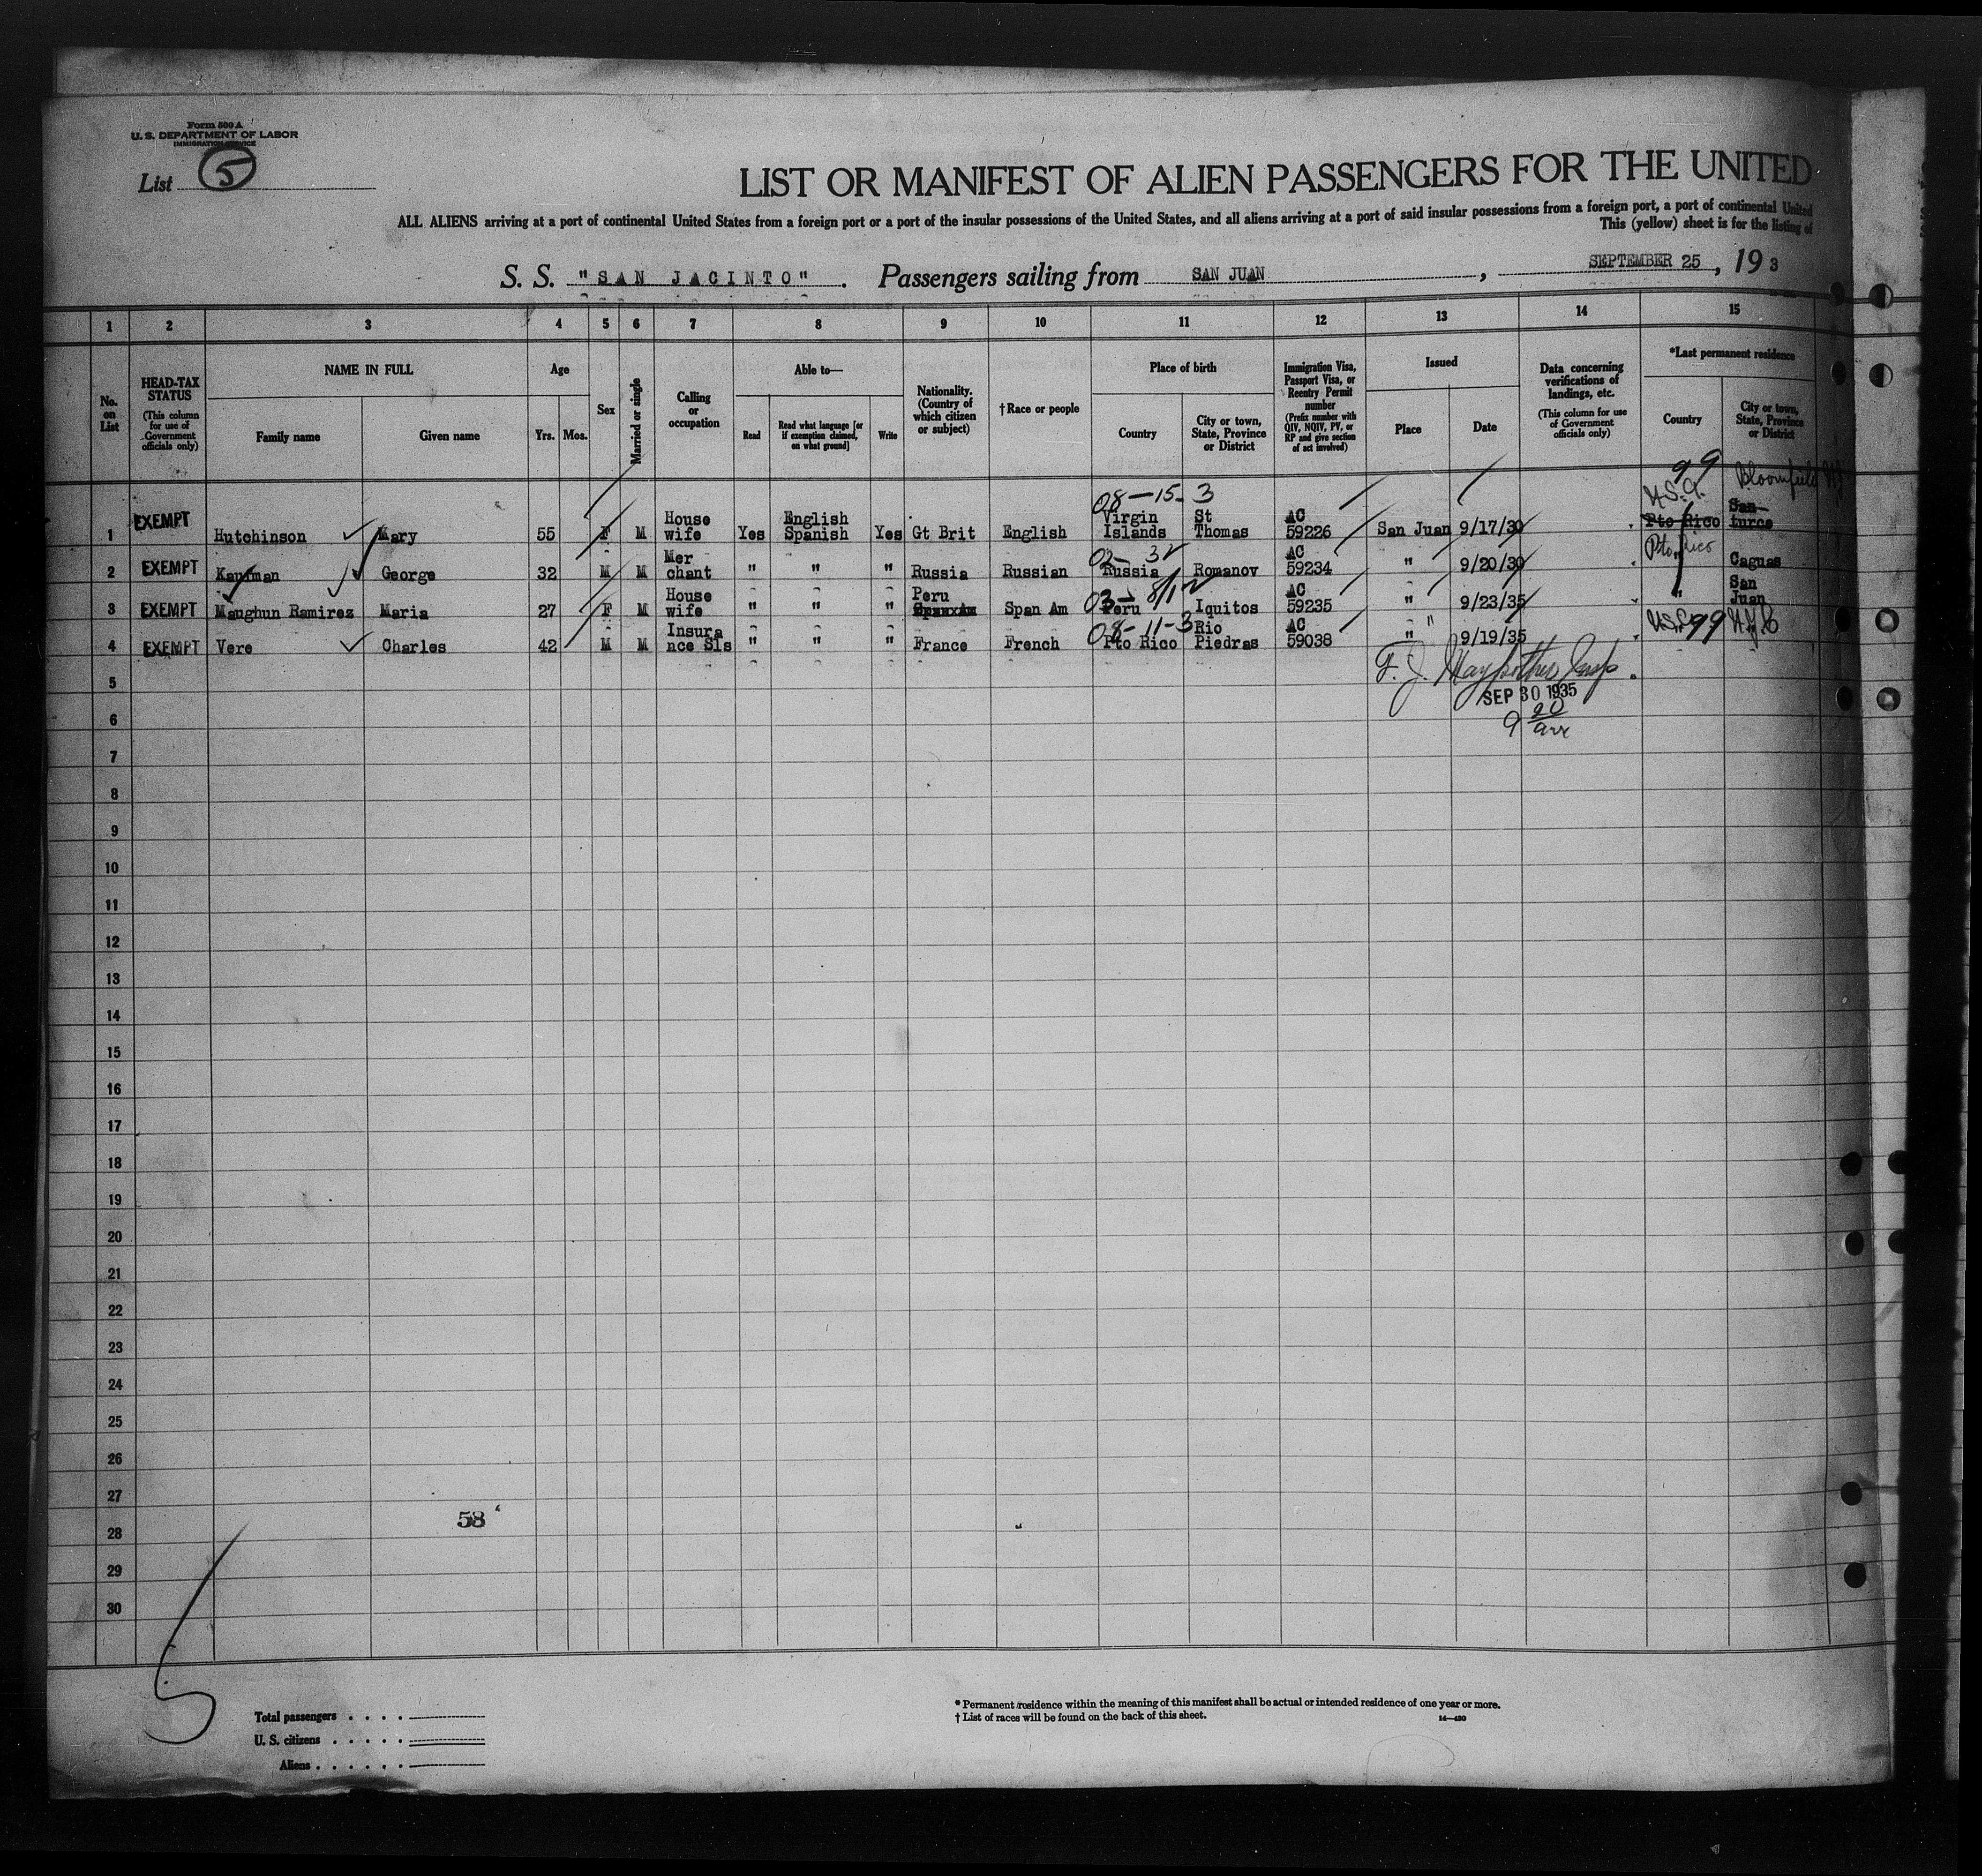 Form 500 A
U. S. DEPARTMENT OF LABOR
IMMIGRATION SERVICE
List 5
LIST OR MANIFEST OF ALIEN PASSENGERS FOR THE UNITED
ALL ALIENS arriving at a port of continental United States from a foreign port or a port of the insular possessions of the United States, and all aliens arriving at a port of said insular possessions from a foreign port, a port of continental United
This (yellow) sheet is for the listing of
S. S. "SAN JACINTO" . Passengers sailing from SAN JUAN , SEPTEMBER 25 , 193
1 2 3 4 5 6 7 8 9 10 11 12 13 14 15
No. on List
HEAD-TAX STATUS (This column for use of Government officials only)
NAME IN FULL
Family name Given name
Age
Yrs. Mos.
Sex
Married or single
Calling or occupation
Able to—
Read Read what language [or if exemption claimed, on what ground] Write
Nationality. (Country of which citizen or subject)
†Race or people
Place of birth
Country City or town, State, Province or District
Immigration Visa, Passport Visa, or Reentry Permit number (Prefix number with QIV, NQIV, PV, or RP and give section of act involved)
Issued
Place Date
Data concerning verifications of landings, etc. (This column for use of Government officials only)
*Last permanent residence
Country City or town, State, Province or District
99 Bloomfield NJ
08-15-3 U.S.A.
1 EXEMPT Hutchinson Mary 55 F M House wife Yes English Spanish Yes Gt Brit English Virgin Islands St Thomas AC 59226 San Juan 9/17/30 Pto Rico San- turce
02- 32 Pto Rico
2 EXEMPT Kaufman George 32 M M Mer chant " " " Russia Russian Russia Romanov AC 59234 " 9/20/30 " Caguas
03- 8/12
3 EXEMPT Maughun Ramirez Maria 27 F M House wife " " " Peru Span Am Peru Iquitos AC 59235 " 9/23/35 " San Juan
08-11-3 99
4 EXEMPT Vere Charles 42 M M Insura nce Sls " " " France French Pto Rico Rio Piedras AC 59038 " 9/19/35
5
SEP 30 1935
6
9 20
7
8
9
10
11
12
13
14
15
16
17
18
19
20
21
22
23
24
25
26
27
58
28
29
30
5
Total passengers . . . .
U. S. citizens . . . . .
Aliens . . . . . .
* Permanent residence within the meaning of this manifest shall be actual or intended residence of one year or more.
† List of races will be found on the back of this sheet. 14—480